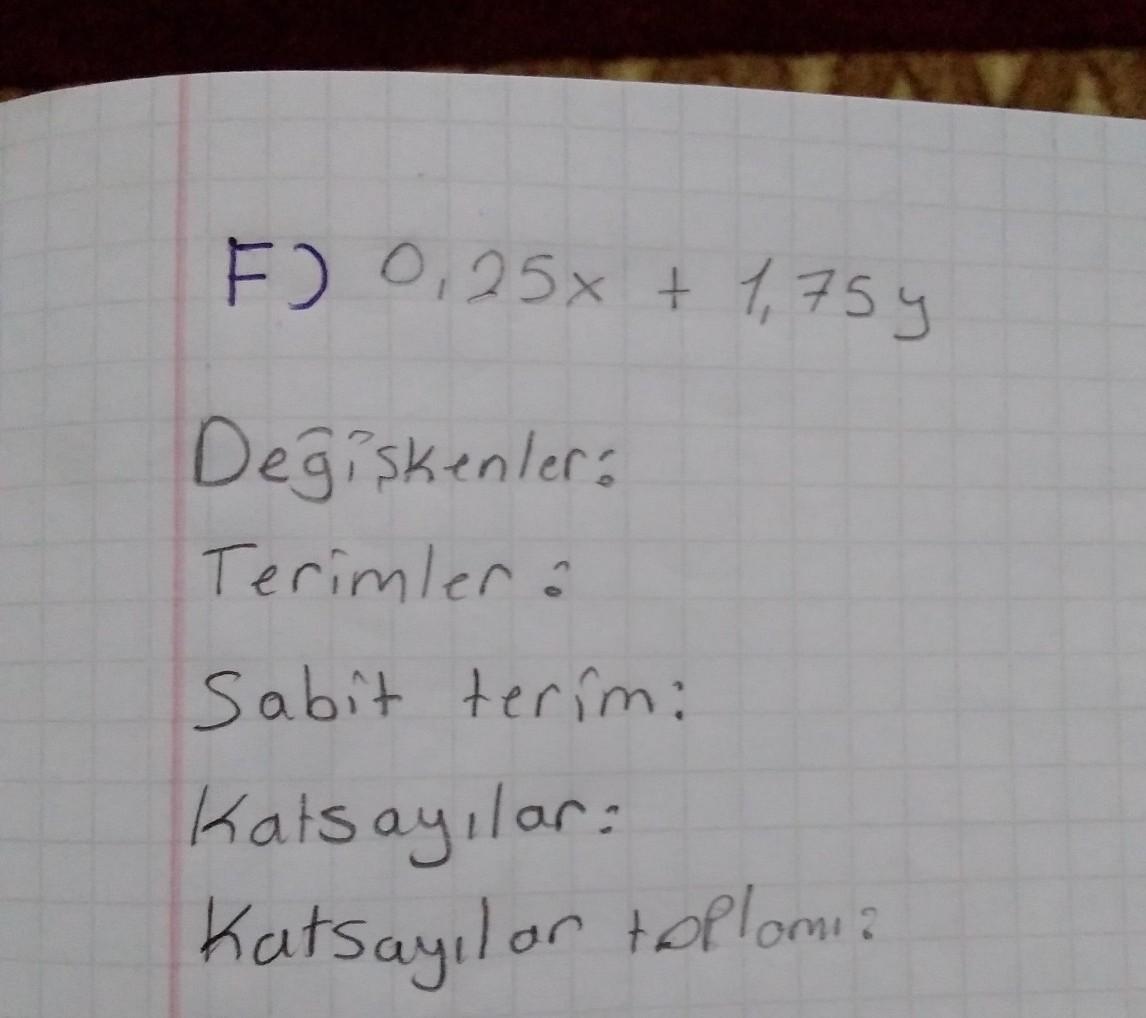 F) 0,25x + 1,75y
Değişkenler:
Terimler:
Sabit terim:
Katsayılar:
Katsayılar toplamı: